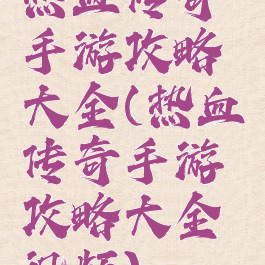 热血传奇
手游攻略
大全(热血
传奇手游
攻略大全
视频)